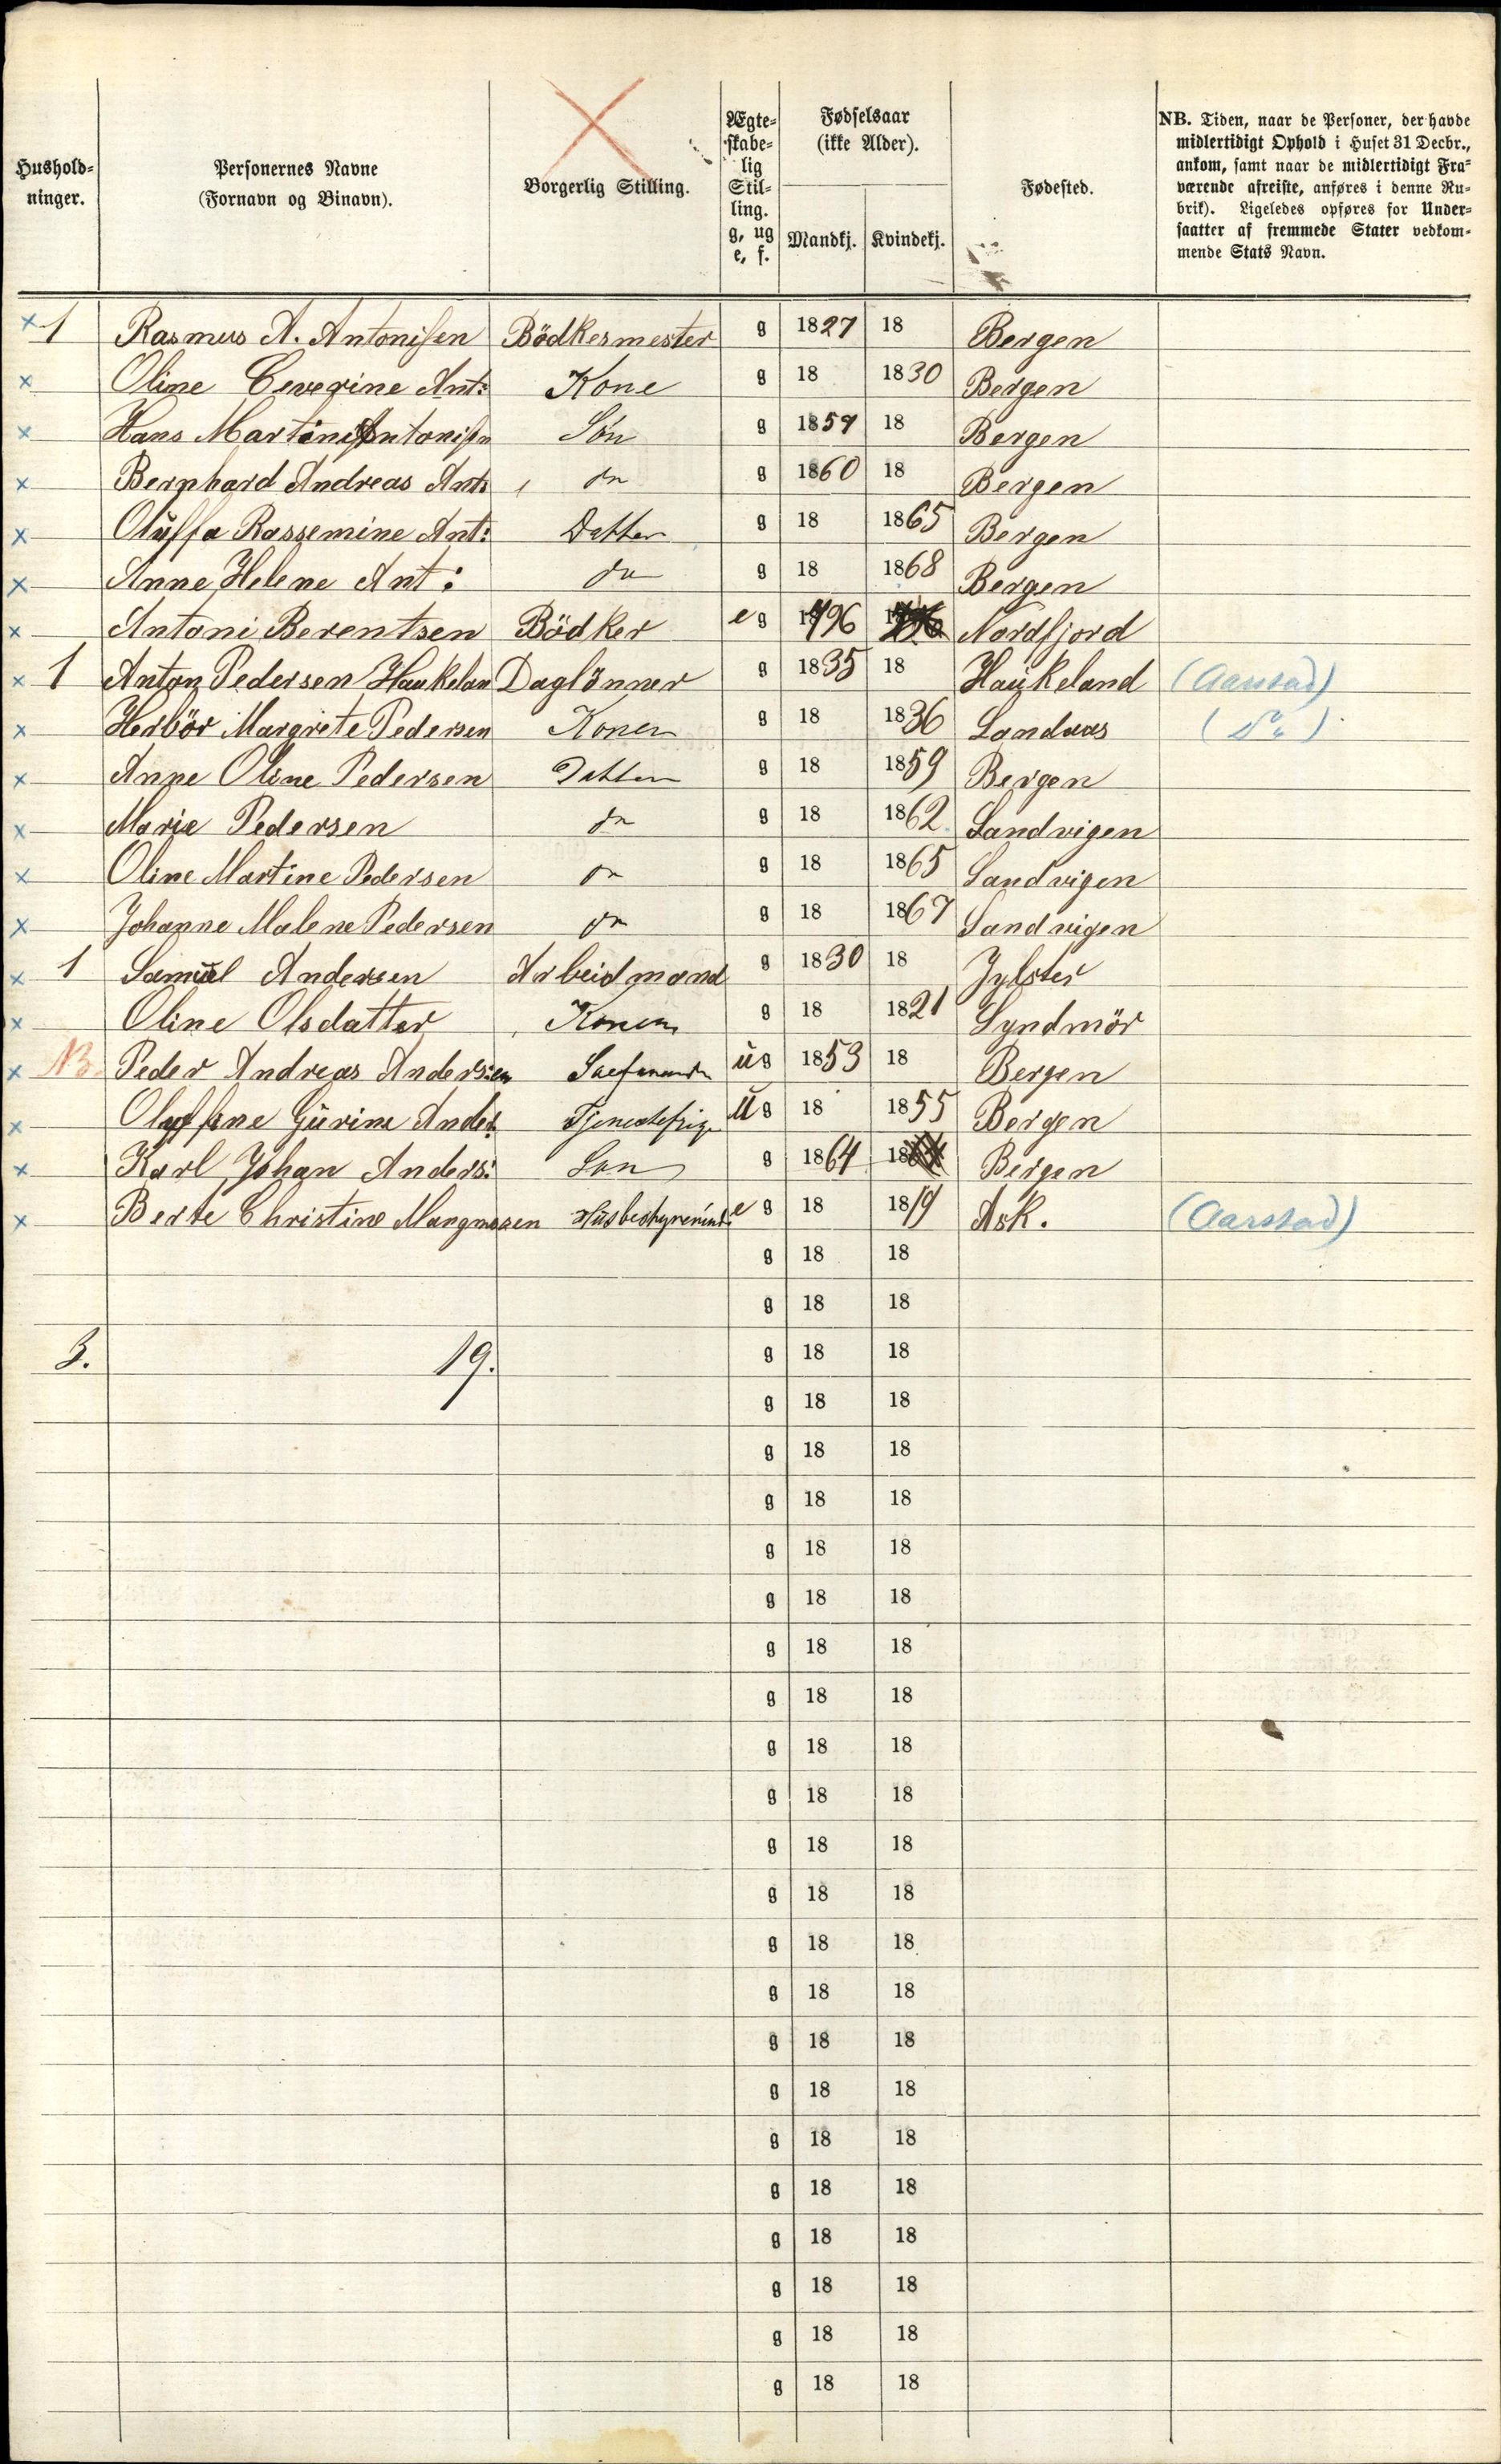 Hushold-
ninger.
Personernes Navne
(Fornavn og Binavn).
Borgerlig Stilling.
Ægte-
skabe-
lig
Stil-
ling.
g, ug
e, f.
Fødselsaar
(ikke Alder).
Mandkj. Kvindekj.
Fødested.
NB. Tiden, naar de Personer, der havde
midlertidigt Ophold i Huset 31 Decbr.,
ankom, samt naar de midlertidigt Fra-
værende afreiste, anføres i denne Ru-
brik). Ligeledes opføres for Under-
saatter af fremmede Stater vedkom-
mende Stats Navn.
x 1 Rasmus A. Antonisen Bödkermester g 1827 18 Bergen
x Oline Ceverine Ant: Kone g 18 1830 Bergen
x Hans Martin Antonisen Sön g 1857 18 Bergen
x Bernhard Andreas Ant: do g 1860 18 Bergen
x Oluffa Rassemine Ant: Datter g 18 1865 Bergen
x Anne Helene Ant: do g 18 1868 Bergen
x Antoni Berentsen Bödker e g 1796 Nordfjord
x 1 Anton Pedersen Haukelan Daglönner g 1835 18 Haukeland (Aarstad)
x Herbör Margrete Pedersen Konen g 18 1836 Landaas (Do)
x Anne Oline Pedersen Datter g 18 1859 Bergen
x Marie Pedersen do g 18 1862 Sandvigen
x Oline Martine Pedersen do g 18 1865 Sandvigen
x Johanne Malene Pedersen do g 18 1867 Sandvigen
x 1 Samuel Andersen Arbeidmand g 1830 18 Jylster
x Oline Olsdatter Konen g 18 1821 Syndmör
x NB. Peder Andreas Andersen ug 1853 18 Bergen
x Oluffine Gurine Ander: Tjenestepige ug 18 1855 Bergen
x Karl Johan Anders: Sön g 1864 18 Bergen
x Berte Christine Mangnusen Husbestyrerinde e g 18 1819 Ask. (Aarstad)
g 18 18
g 18 18
3. 19. g 18 18
g 18 18
g 18 18
g 18 18
g 18 18
g 18 18
g 18 18
g 18 18
g 18 18
g 18 18
g 18 18
g 18 18
g 18 18
g 18 18
g 18 18
g 18 18
g 18 18
g 18 18
g 18 18
g 18 18
g 18 18
g 18 18